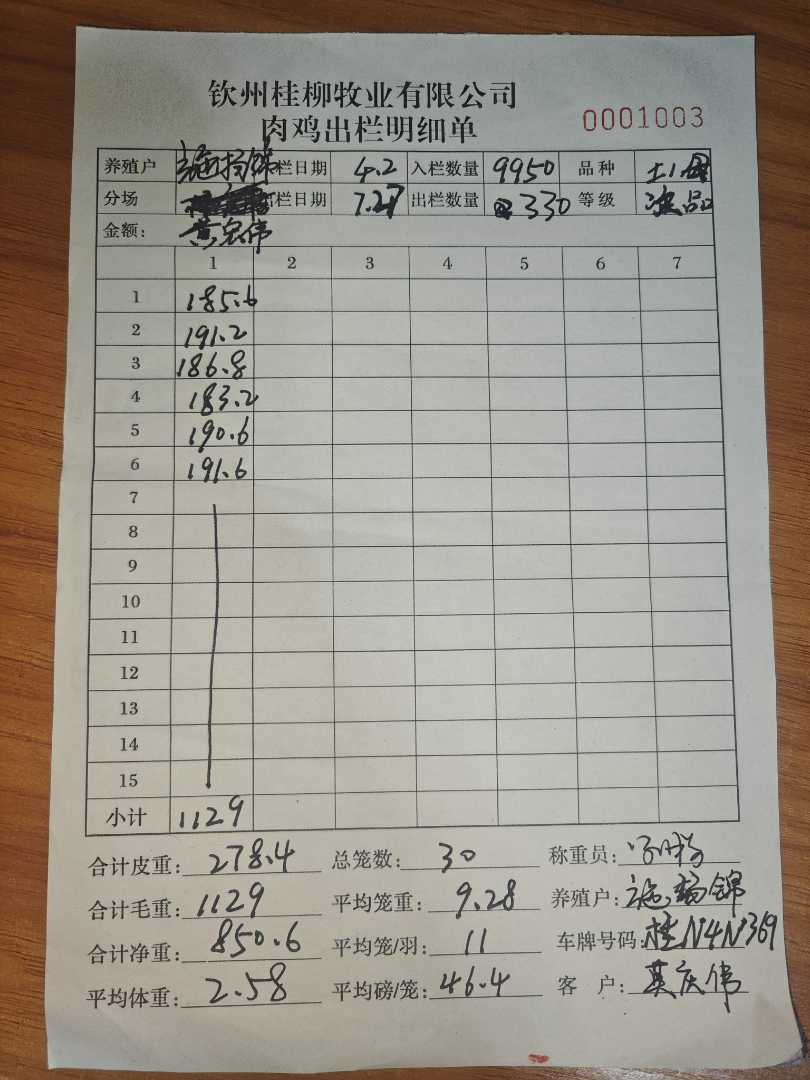 钦州桂柳牧业有限公司
肉鸡出栏明细单 0001003
养殖户 施扬锦 栏日期 4.2 入栏数量 9950 品种
分场 栏日期 7.27 出栏数量 330 等级 次品
金额:
1 2 3 4 5 6 7
1 185.6
2 191.2
3 186.8
4 183.2
5 190.6
6 191.6
7
8
9
10
11
12
13
14
15
小计 1129
合计皮重: 278.4 总笼数: 30 称重员:
合计毛重: 1129 平均笼重: 9.28 养殖户: 施扬锦
合计净重: 850.6 平均笼/羽: 11 车牌号码: 桂N4N369
平均体重: 2.58 平均磅/笼: 46.4 客 户: